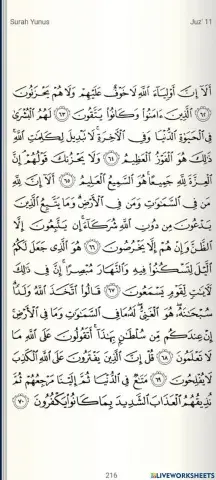 Surah Yunus Juz' 11
أَلَآ إِنَّ أَوْلِيَآءَ ٱللَّهِ لَا خَوْفٌ عَلَيْهِمْ وَلَا هُمْ يَحْزَنُونَ
٦٢ ٱلَّذِينَ ءَامَنُوا۟ وَكَانُوا۟ يَتَّقُونَ ٦٣ لَهُمُ ٱلْبُشْرَىٰ
فِى ٱلْحَيَوٰةِ ٱلدُّنْيَا وَفِى ٱلْءَاخِرَةِ لَا تَبْدِيلَ لِكَلِمَٰتِ ٱللَّهِ
ذَٰلِكَ هُوَ ٱلْفَوْزُ ٱلْعَظِيمُ ٦٤ وَلَا يَحْزُنكَ قَوْلُهُمْ إِنَّ
ٱلْعِزَّةَ لِلَّهِ جَمِيعًا هُوَ ٱلسَّمِيعُ ٱلْعَلِيمُ ٦٥ أَلَآ إِنَّ لِلَّهِ
مَن فِى ٱلسَّمَٰوَٰتِ وَمَن فِى ٱلْأَرْضِ وَمَا يَتَّبِعُ ٱلَّذِينَ
يَدْعُونَ مِن دُونِ ٱللَّهِ شُرَكَآءَ إِن يَتَّبِعُونَ إِلَّا
ٱلظَّنَّ وَإِنْ هُمْ إِلَّا يَخْرُصُونَ ٦٦ هُوَ ٱلَّذِى جَعَلَ لَكُمُ
ٱلَّيْلَ لِتَسْكُنُوا۟ فِيهِ وَٱلنَّهَارَ مُبْصِرًا إِنَّ فِى ذَٰلِكَ
لَءَايَٰتٍ لِّقَوْمٍ يَسْمَعُونَ ٦٧ قَالُوا۟ ٱتَّخَذَ ٱللَّهُ وَلَدًا
سُبْحَٰنَهُۥ هُوَ ٱلْغَنِىُّ لَهُۥ مَا فِى ٱلسَّمَٰوَٰتِ وَمَا فِى ٱلْأَرْضِ
إِنْ عِندَكُم مِّن سُلْطَٰنٍۭ بِهَٰذَآ أَتَقُولُونَ عَلَى ٱللَّهِ مَا
لَا تَعْلَمُونَ ٦٨ قُلْ إِنَّ ٱلَّذِينَ يَفْتَرُونَ عَلَى ٱللَّهِ ٱلْكَذِبَ
لَا يُفْلِحُونَ ٦٩ مَتَٰعٌ فِى ٱلدُّنْيَا ثُمَّ إِلَيْنَا مَرْجِعُهُمْ ثُمَّ
نُذِيقُهُمُ ٱلْعَذَابَ ٱلشَّدِيدَ بِمَا كَانُوا۟ يَكْفُرُونَ ٧٠
216
LIVEWORKSHEETS